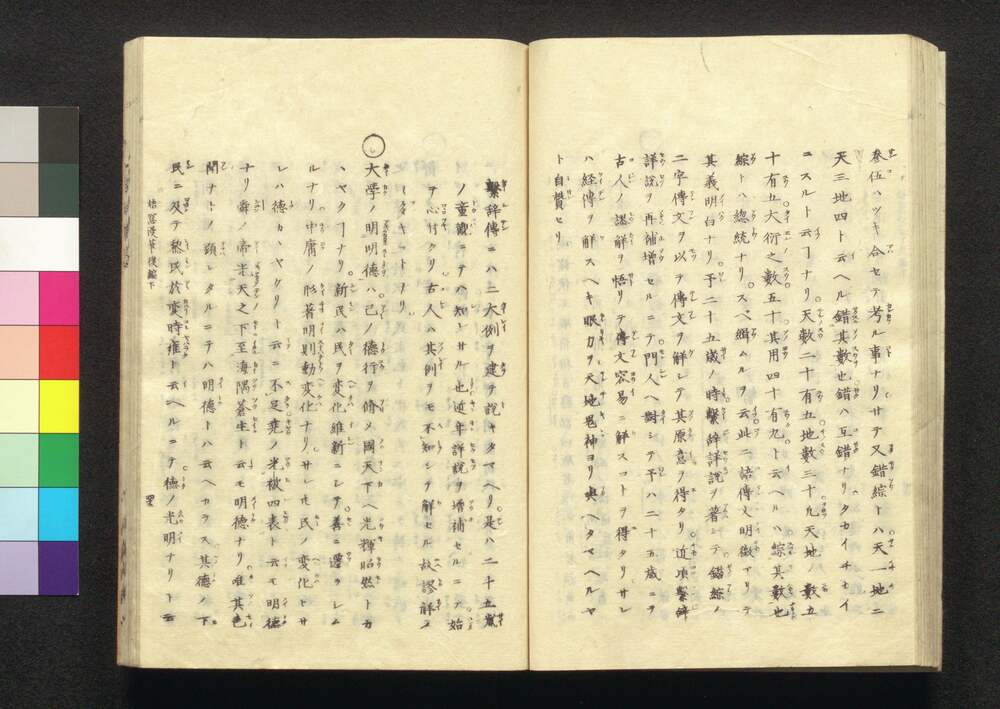 参伍ハツキ合セテ考ル事ナリサテ又錯綜トハ天一地二
天三地四ト云ヘル錯其数也錯ハ互錯ナリタカイチセイ
ニスルト云ヿナリ天数二十有五地数三十凡天地ノ数五
十有五大衍之数五十其用四十有九ト云ヘルハ綜其数也
綜トハ総統ナリスヘ緝ムルヲ云此二語傳文明徴アリテ
其義明白ナリ予二十五歳ノ時繋辞詳説ヲ著シテ錯綜ノ
二字傳文ヲ以テ傳文ヲ解シテ其原意ヲ得タリ近頃繋辞
詳説ヲ再補増セルニテ門人ヘ對シテ予ハ二十五歳ニテ
古人ノ誤解ヲ悟リテ傳文容易ニ解スコトヲ得タリサレ
ハ経傳ヲ解スヘキ眼力ヲ天地鬼神ヨリ與ヘタマヘルヤ
ト自賛セリ
繋辞傳ニハ三大例ヲ建テ説キタマヘリ是ハ二十五歳
ノ童観ニテハ知レサル也近年詳説ヲ増補セルニテ始
テ心付クリ古人ハ其例ヲモ不知シテ解セル故謬解ノ
大學ノ明明徳ハ己ノ徳行ヲ脩メ國天下ヘ光輝昭然トカ
ハヤクヿナリ新民ハ民ヲ変化維新ニシテ善ニ遷ラシム
ルナリ中庸ノ形著明則動変化ナリサレ𪜈民ノ変化トサ
レハ徳カヽヤクリト云ニ不足堯ノ光被四表ト云モ明徳
ナリ舜ノ帝光天之下至海隅蒼生ト云モ明徳ナリ唯其色
聞ナトノ顕レタルニテハ明徳トハ云ヘカラス其徳ノ下
民ニ及テ黎民於変時雍ト云ヘルニテ徳ノ光明ナリト云
漫筆後編下